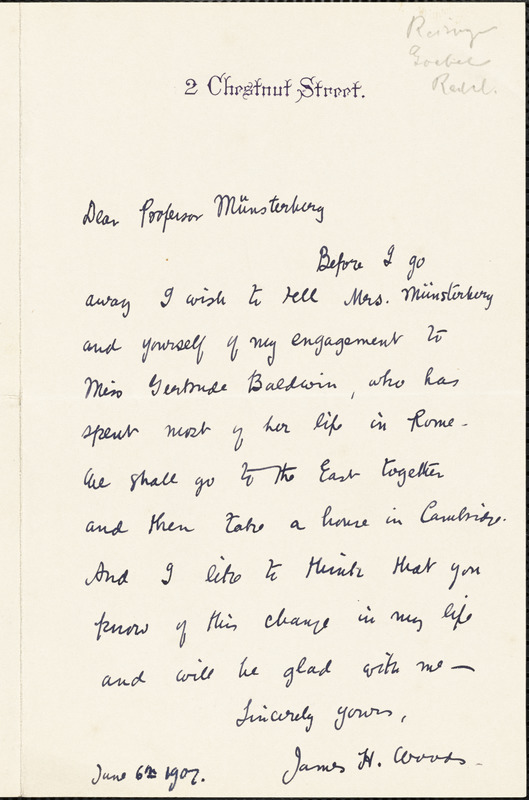 2 Chestnut Street.
Dear Professor Münsterberg
Before I go
away I wish to tell Mrs. Münsterberg
and yourself of my engagement to
Miss Gertrude Baldwin, who has
spent most of her life in Rome.
We shall go to the East together
and then take a house in Cambridge.
And I like to think that you
know of this change in my life
and will be glad with me —
Sincerely yours,
James H. Woods.
June 6th 1907.